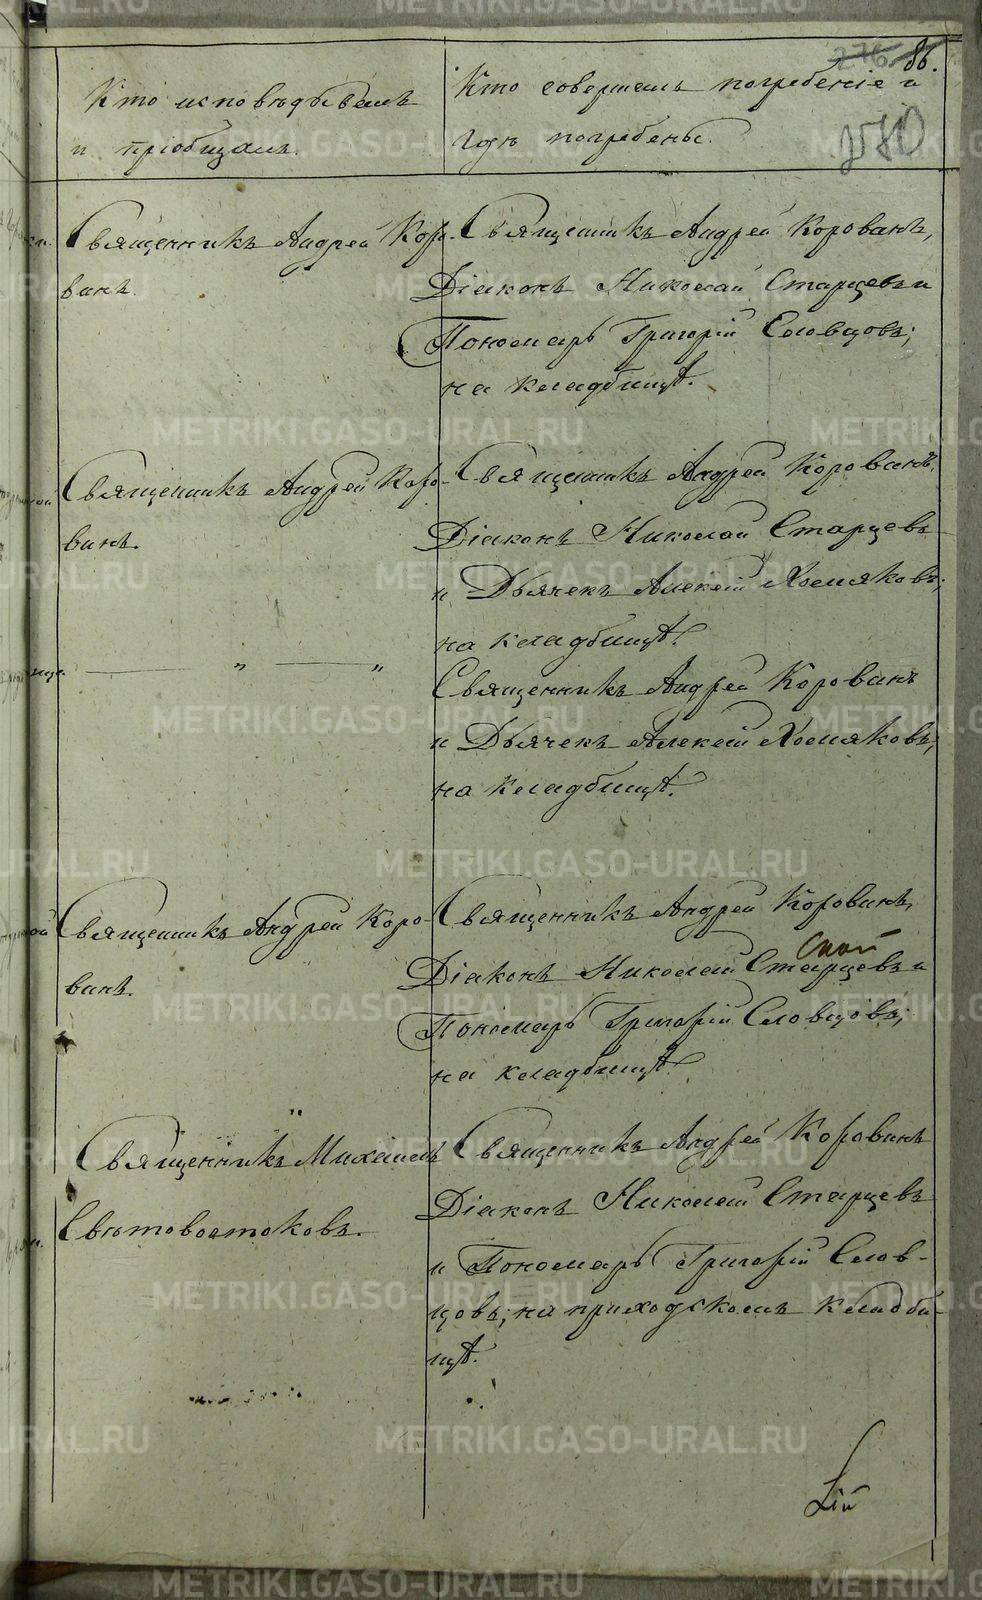 276 86.
Кто исповѣдывалъ
и пріобщалъ.
Кто совершалъ погребеніе и
гдѣ погребены.
Священникъ Андрей Коро-
винъ.
Священникъ Андрей Коровинъ,
Діаконъ Николай Старцевъ и
Пономарь Григорій Словцовъ;
на кладбищѣ.
Священникъ Андрей Коро-
винъ.
Священникъ Андрей Коровинъ,
Діаконъ Николай Старцевъ
и Дьячекъ Алексій Хомяковъ;
на кладбищѣ.
" "
Священникъ Андрей Коровинъ
и Дьячекъ Алексій Хомяковъ;
на кладбищѣ.
Священникъ Андрей Коро-
винъ.
Священникъ Андрей Коровинъ,
Діаконъ Николай Старцевъ и
Пономарь Григорій Словцовъ;
на кладбищѣ.
"
Священникъ Михаилъ
Свѣтовостоковъ.
Священникъ Андрей Коровинъ
Діаконъ Николай Старцевъ
и Пономарь Григорій Слов-
цовъ; на приходскомъ кладби-
щѣ.
METRIKI.GASO-URAL.RU